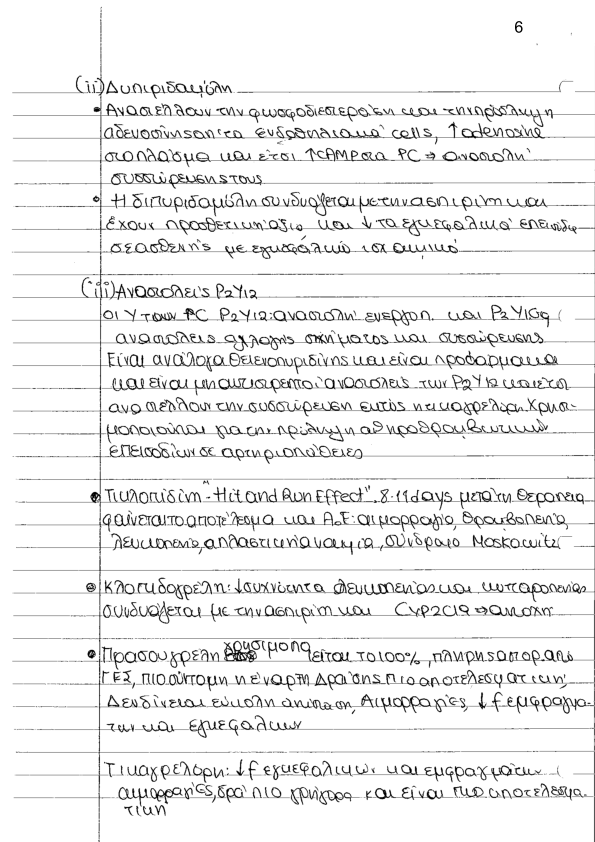 6
(ii) Δυπιριδαμόλη
• Αναστέλλουν την φωσφοδιεστεράση και την πρόσληψη
αδενοσίνης από τα ενδοθηλιακά cells, ↑ adenosine
στο πλάσμα και έτσι ↑CAMP στα PC ⇒ αναστολή
συσσώρευσης τους
• Η διπυριδαμόλη συνδυάζεται με την ασπιρίνη και
έχουν προσθετική αξία και ↓ τα εγκεφαλικά επεισόδια
σε ασθενής με εγκεφαλικό ισχαιμικό
(iii) Αναστολείς P2Y12
οι Υ των PC P2Y12: αναστολή ενεργοπ. και P2Y1Gq
αναστολείς αλλαγής σχήματος και συσσώρευσης
Είναι ανάλογα θειενοπυριδίνης και είναι προφάρμακα
και είναι μη αντιστρεπτοί αναστολείς των P2Y12 και έτσι
αναστέλλουν την συσσώρευση εκτός η τικαγρελόρη. Χρησι-
μοποιούνται για την πρόληψη αθηροθρομβωτικών
επεισοδίων σε αρτηριοπάθειες
• Τικλοπιδίνη - "Hit and Run Effect". 8-11 days μετά τη θεραπεία
φαίνεται το αποτέλεσμα και Α.Ε: αιμορραγία, θρομβοπενία,
λευκοπενία, απλαστική αναιμία, σύνδρομο Moskowitz
• Κλοπιδογρέλη: ↓συχνότητα λευκοπενίας και κυτταροπενίας
συνδυάζεται με την ασπιρίνη και CYP2C19 ⇒ αποχή
• Πρασουγρέλη χρησιμοποιείται το 100%, πλήρης απορ. από
ΓΕΣ, πιο σύντομη η έναρξη δράσης πιο αποτελεσματική,
Δεν δίνεται εύκολη απόπαση, Αιμορραγίες, ↓ f εμφραγμά-
των και εγκεφαλικών
Τικαγρελόρη: ↓ f εγκεφαλικών και εμφραγμάτων
αιμορραγίες, δρα πιο γρήγορα και είναι πιο αποτελεσμα-
τική